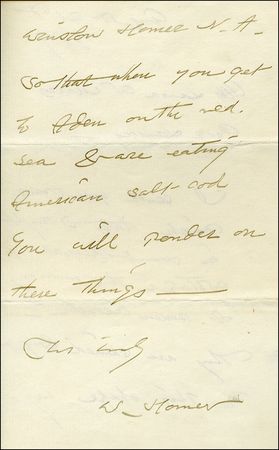 Winslow Homer N.A.
So that when you get
to Aden on the red.
sea & are eating
American salt-cod
You will ponder on
these things —
truly
W. Homer